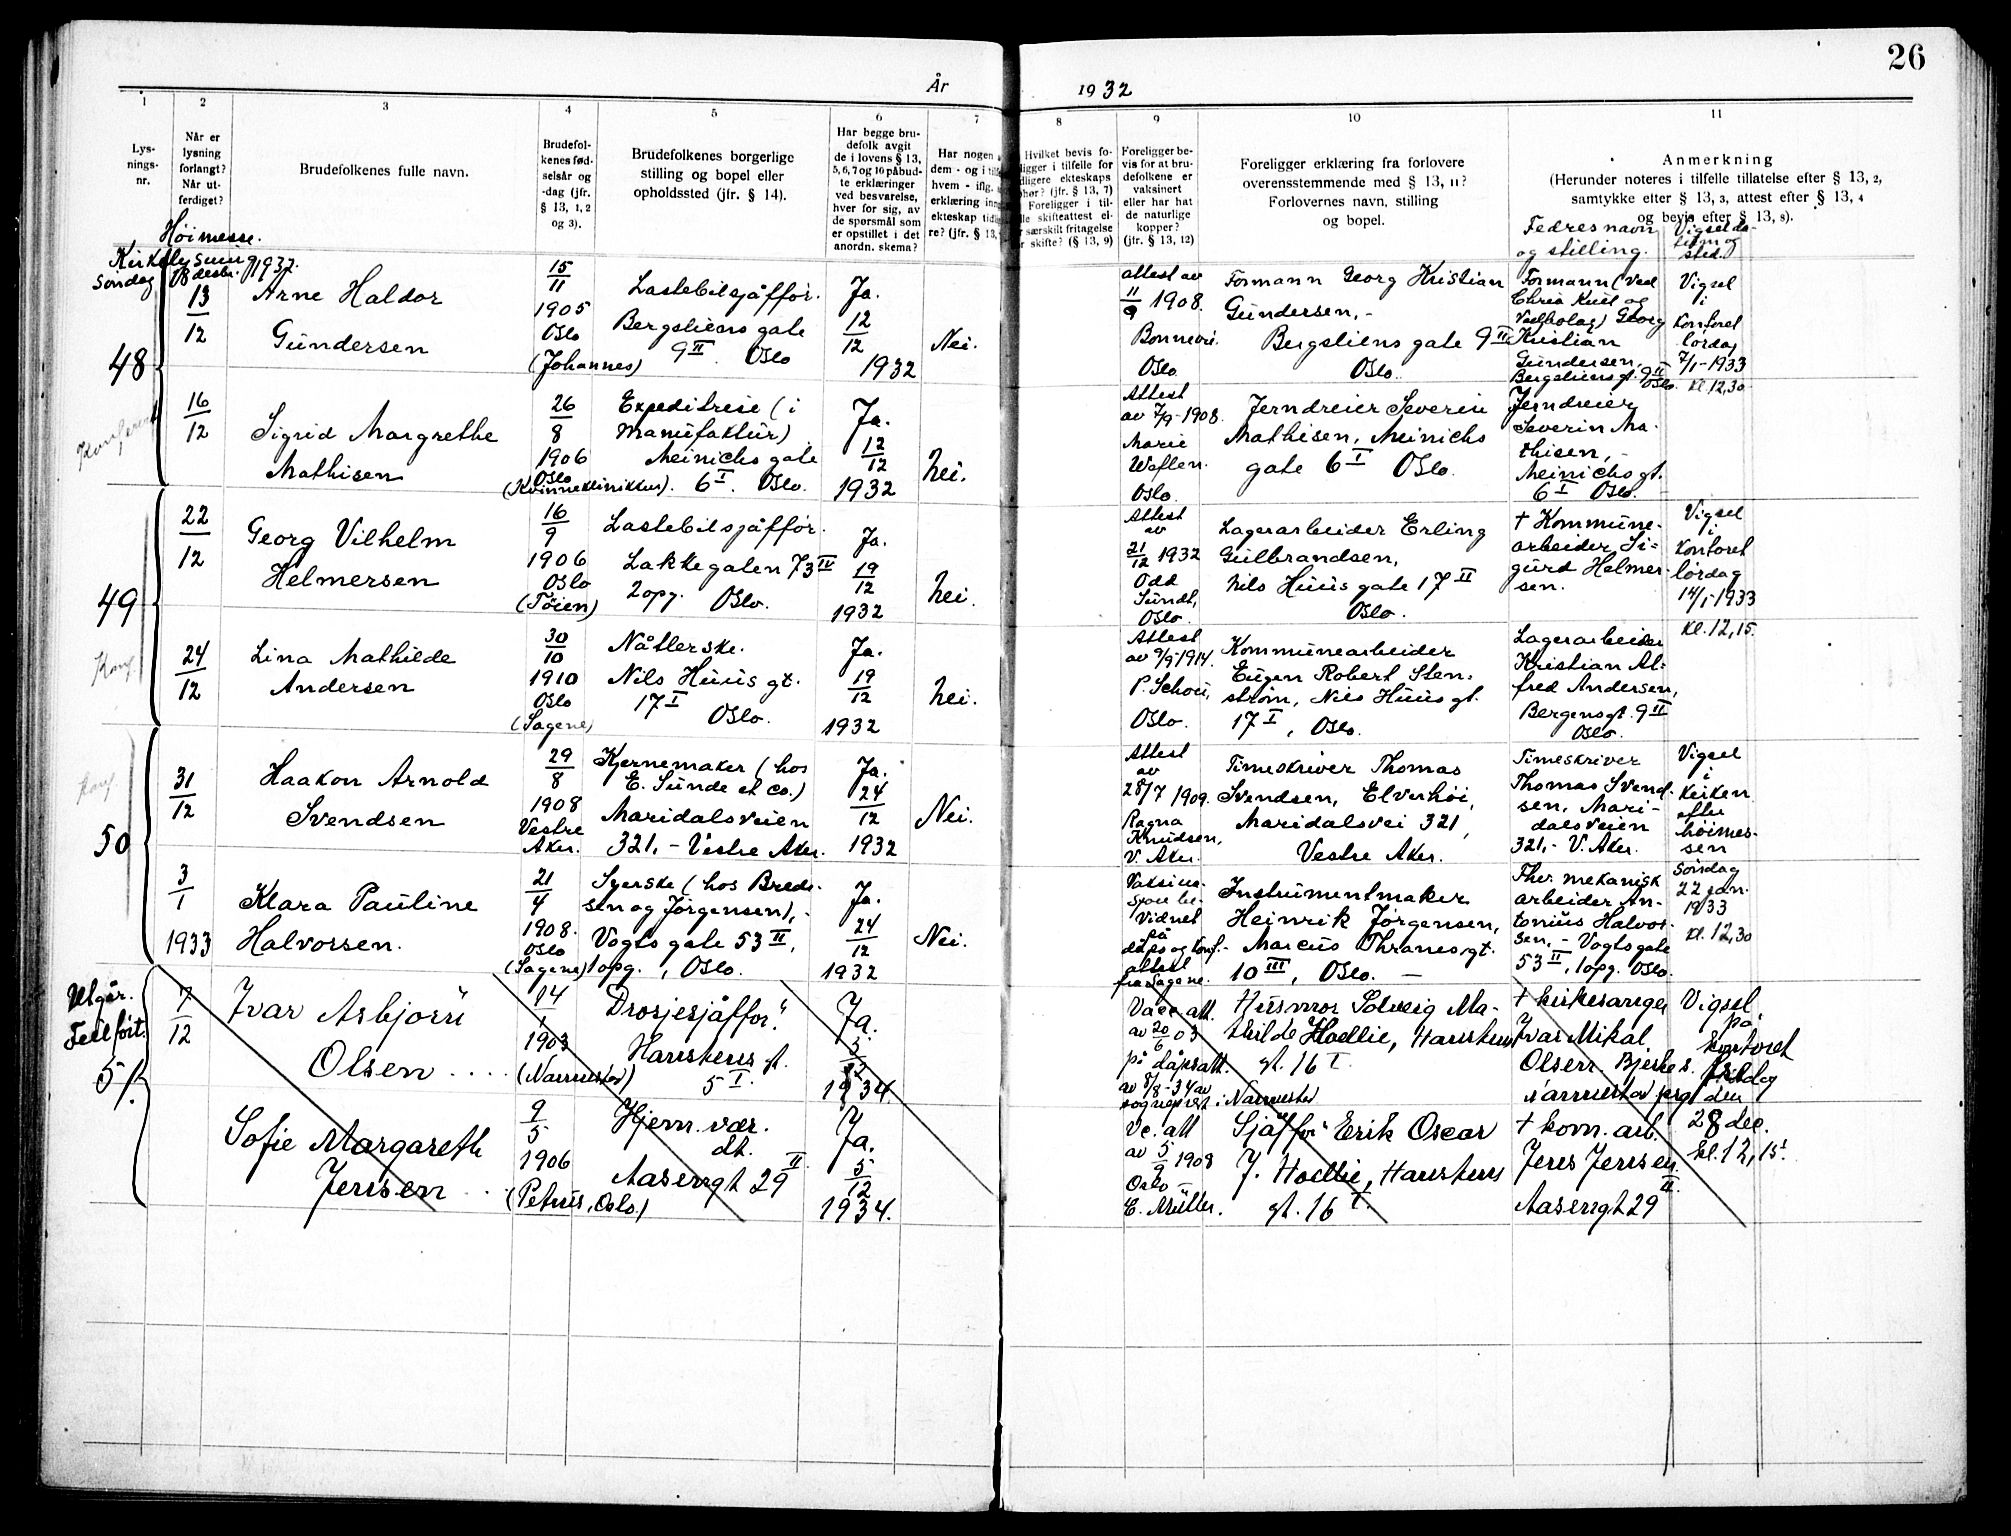 26
År 1932
1
2
3
4
5
6
7
8
9
10
11
Lys-
nings-
nr.
Når er
lysning
forlangt?
Når ut-
ferdiget?
Brudefolkenes fulle navn.
Brudefol-
kenes fød-
selsår og
-dag (jfr.
§ 13, 1, 2
og 3).
Brudefolkenes borgerlige
stilling og bopel eller
opholdssted (jfr. § 14).
Har begge bru-
defolk avgit
de i lovens § 13,
5, 6, 7 og 10 påbud-
te erklæringer
ved besvarelse,
hver for sig, av
de spørsmål som
er opstillet i det
anordn. skema?
Har nogen
dem - og i
hvem - iflg.
erklæring
ekteskap
re? (jfr. § 13,
Hvilket bevis fo-
ligger i tilfelle for
dligere ekteskaps
hør? (jfr. § 13, 7)
Foreligger i til-
le skifteattest el-
r særskilt fritagelse
r skifte? (§ 13, 9)
Foreligger be-
vis for at bru-
defolkene er
vaksinert
eller har hat
de naturlige
kopper?
(jfr. § 13, 12)
Foreligger erklæring fra forlovere
overensstemmende med § 13, 11?
Forlovernes navn, stilling
og bopel.
Anmerkning
(Herunder noteres i tilfelle tillatelse efter § 13, 2,
samtykke efter § 13, 3, attest efter § 13, 4
og bevis efter § 13, 8).
Fedres navn
og stilling.
Vigselds-
tim og
sted.
Høimesse.
Kirkelysning
søndag 18 desbr. 1932.
48
13
12
Arne Haldor
Gundersen
15
11
1905
Oslo
(Johannes)
Lastebilsjåffør.
Bergsliens gate
9 II Oslo
Ja.
12
12
1932
Nei.
attest av
11
9 1908.
Bonnevi.
Oslo.
Formann Georg Kristian
Gundersen, -
Bergsliens gate 9 II
Oslo.
Formann (ved
Chria Kull og
Vedbolag) Georg
Kristian
Gundersen,
Bergsliensgt. 9 II
Oslo.
Vigsel
i
Kontoret
lørdag
7/1-1933
kl. 12,30
16
12
Sigrid Margrethe
Mathisen
26
8
1906
Oslo
(Kvinneklinikken).
Expeditrise (i
Manufaktur)
Meinichs gate
6 I. Oslo.
Ja.
12
12
1932
Nei.
Attest
av 7/9-1908.
Marie
Weflen.
Oslo.
Jerndreier Severin
Mathisen, Meinichs
gate 6 I Oslo.
Jerndreier
Severin Ma-
thisen, -
Meinichs gt.
6 I Oslo.
49
22
12
Georg Vilhelm
Helmersen
16
9
1906
Oslo
(Tøien)
Lastebilsjåffør.
Lakkegaten 73 IV
2 opg. Oslo.
Ja.
19
12
1932
Nei.
Attest
av
21
12 1932
Odd
Sundt,
Oslo.
Lagerarbeider Erling
Gulbrandsen,
Nils Huus gate 17 II
Oslo.
† Kommune-
arbeider Si-
gurd Helmer-
sen.
Vigsel
i
Kontoret
lørdag
14/1-1933
kl. 12,15.
24
12
Lina Mathilde
Andersen
30
10
1910
Oslo
(Sagene)
Nåtlerske.
Nils Huus gt.
17 I
Oslo.
Ja.
19
12
1932
Nei.
Attest
av 9/9-1914.
P. Schou,
Oslo.
Kommunearbeider
Eugen Robert Sten-
strøm, Nils Huus gt.
17 I, Oslo.
Lagerarbeider
Kristian Al-
fred Andersen,
Bergensgt. 9 II
Oslo.
50
31
12
Haakon Arnold
Svendsen
29
8
1908
Vestre
Aker.
Kjernemaker (hos
E. Sunde et co.)
Maridalsveien
321. - Vestre Aker.
Ja.
24
12
1932
Nei.
Attest
av
28/7 1909.
Ragna
Knudsen,
V. Aker.
Timeskriver Thomas
Svendsen, Elverhøi,
Maridalsvei 321,
Vestre Aker.
Timeskriver
Thomas Svend-
sen, Mari-
dalsveien
321, - V. Aker.
Vigsel
i
Kirken
efter
høimes-
sen
søndag
22 jan.
1933
kl. 12,30
3
1
1933
Klara Pauline
Halvorsen.
21
4
1908.
Oslo
(Sagene)
Syerske (hos Bred-
sen og Jørgensen), -
Vogts gate 53 II,
1 opg., Oslo.
Ja.
24
12
1932
Nei.
Vidnet
på
dåps og konf.-
attest
fra Sagene.
Instrumentmaker
Heinrik Jørgensen,
Marcus Thranes gt.
10 III, Oslo. -
Fhv. mekanisk
arbeider An-
tonius Halvor-
sen, - Vogts gate
53 II, 1 opg. Oslo.
Utgår.
Feilført.
51.
7
12
Ivar Asbjørn
Olsen ....
14
1
1903
(Nannestad)
Drosjesjåffør.
Hausteens gt.
5 I.
Ja.
5
12
1934.
Vacc. att.
av 20
6 03
på dåpsatt.
av 8/8-34 av
sogneprest i Nannestad
Husmor Solveig Ma-
thilde Hoellie, Hausteens
gt. 16 I.
† kirkesanger
Ivar Mikal
Olsen Bjerke s.
Nannestad prgj
Vigsel
på
kontoret
fredag
den
28 dec.
kl. 12,15!
Sofie Margareth
Jensen ..
9
5
1906
(Petrus, Oslo.)
Hjem. vær.
dt.
Aasengt 29 II
Ja.
5
12
1934.
Vc. att
av 5
9 1908
Oslo -
E. Müller.
Sjåffør Erik Oscar
J. Hoellie, Hausteens
gt. 16 I.
† kom. arb.
Jens Jensen.
Aasengt 29 II.